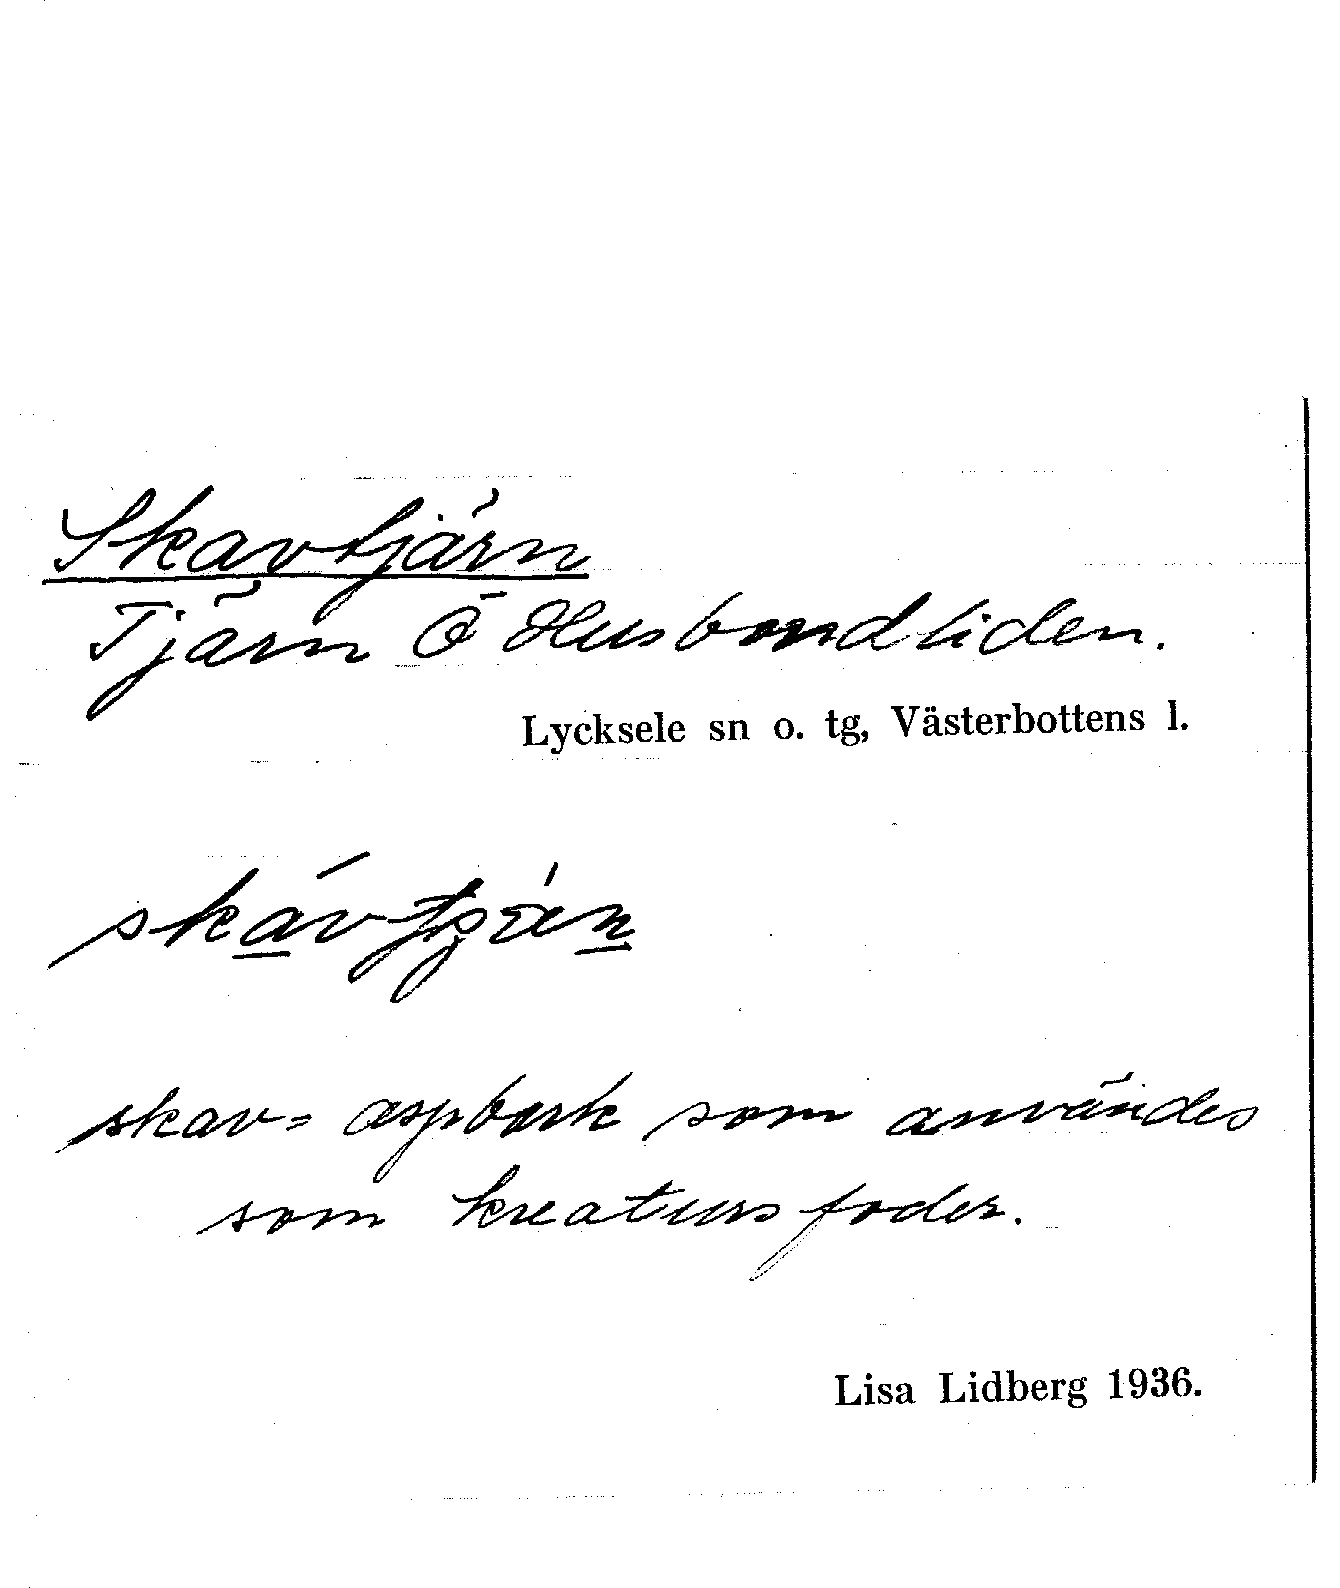 Skavtjärn
Tjärn Ö Husbondliden.
Lycksele sn o. tg, Västerbottens l.
skav= aspbark som användes
som kreatursfoder.
Lisa Lidberg 1936.